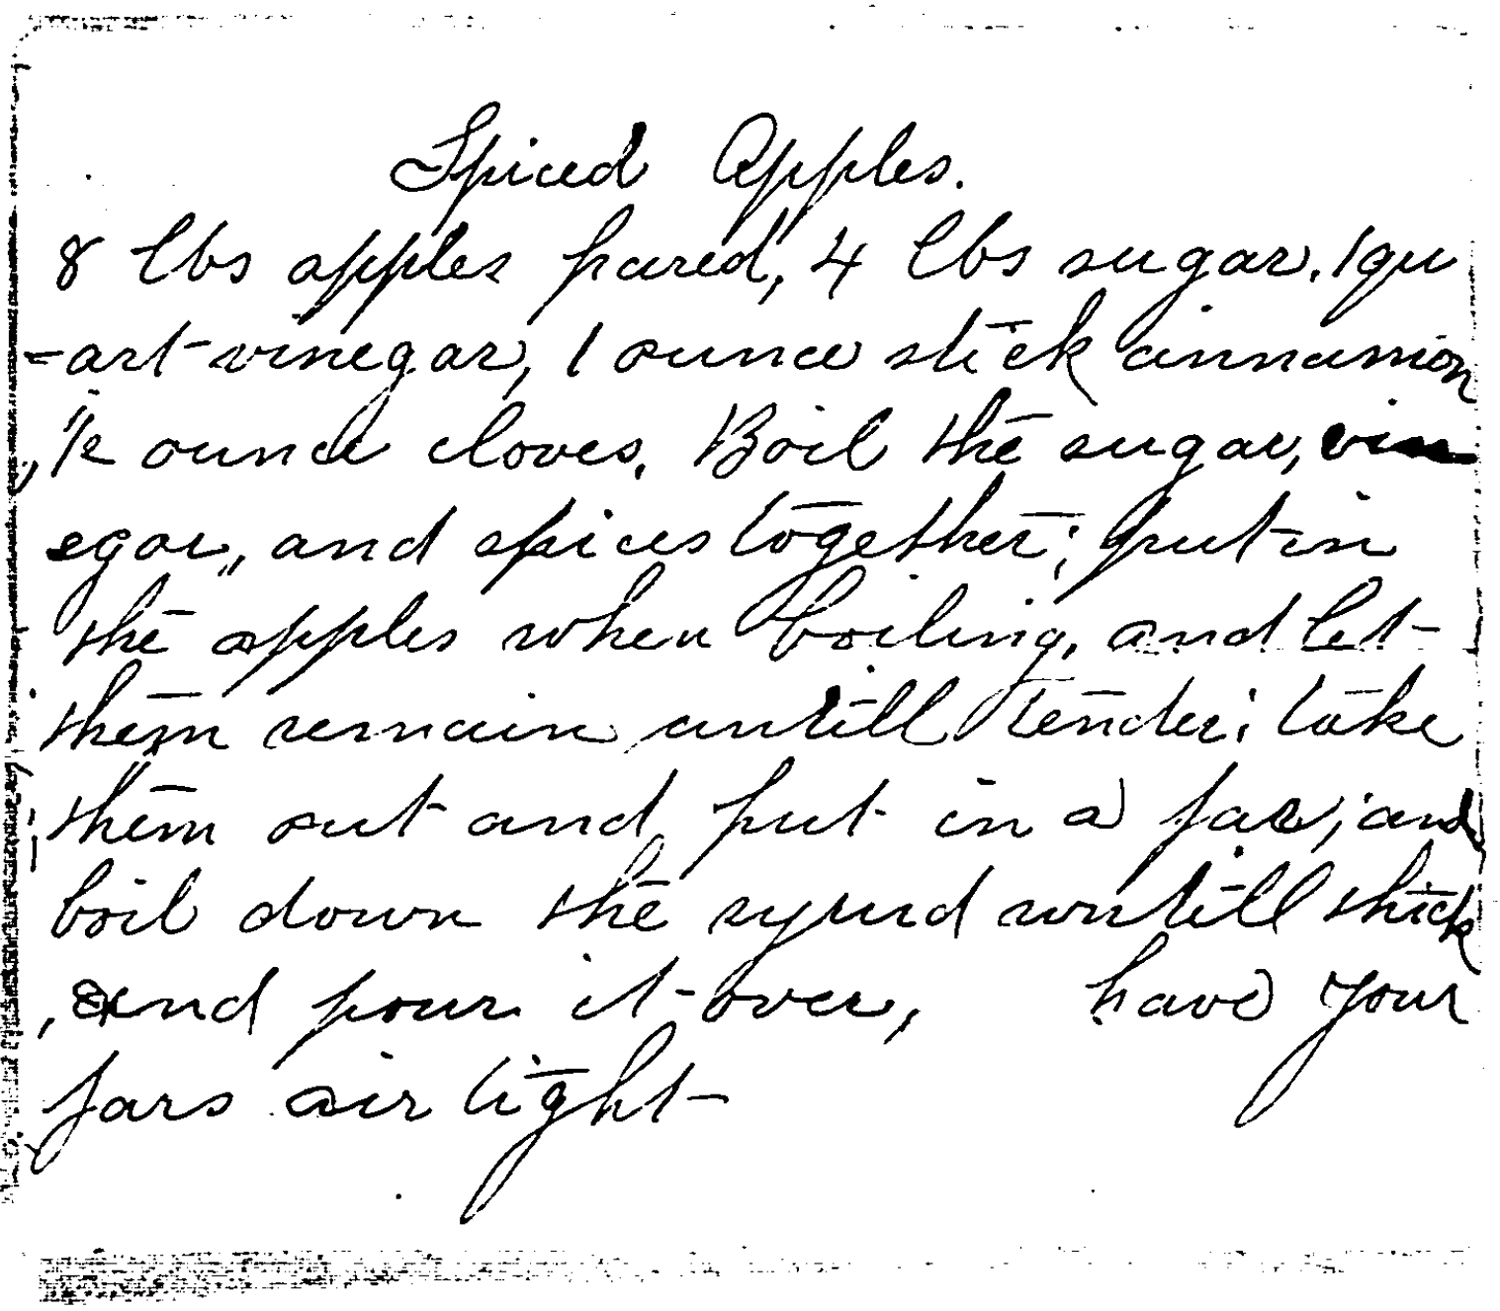 Spiced Apples.
8 lbs apples pared, 4 lbs sugar. 1 qu
=art vinegar, 1 ounce stick cinnamon
, 1/2 ounce cloves. Boil the sugar, vin
egar,, and spices together; put in
the apples when boiling, and let
them remain untill tender; take
them out and put in a jar; and
boil down the syrud untill thick
, and pour it over, have your
jars air tight